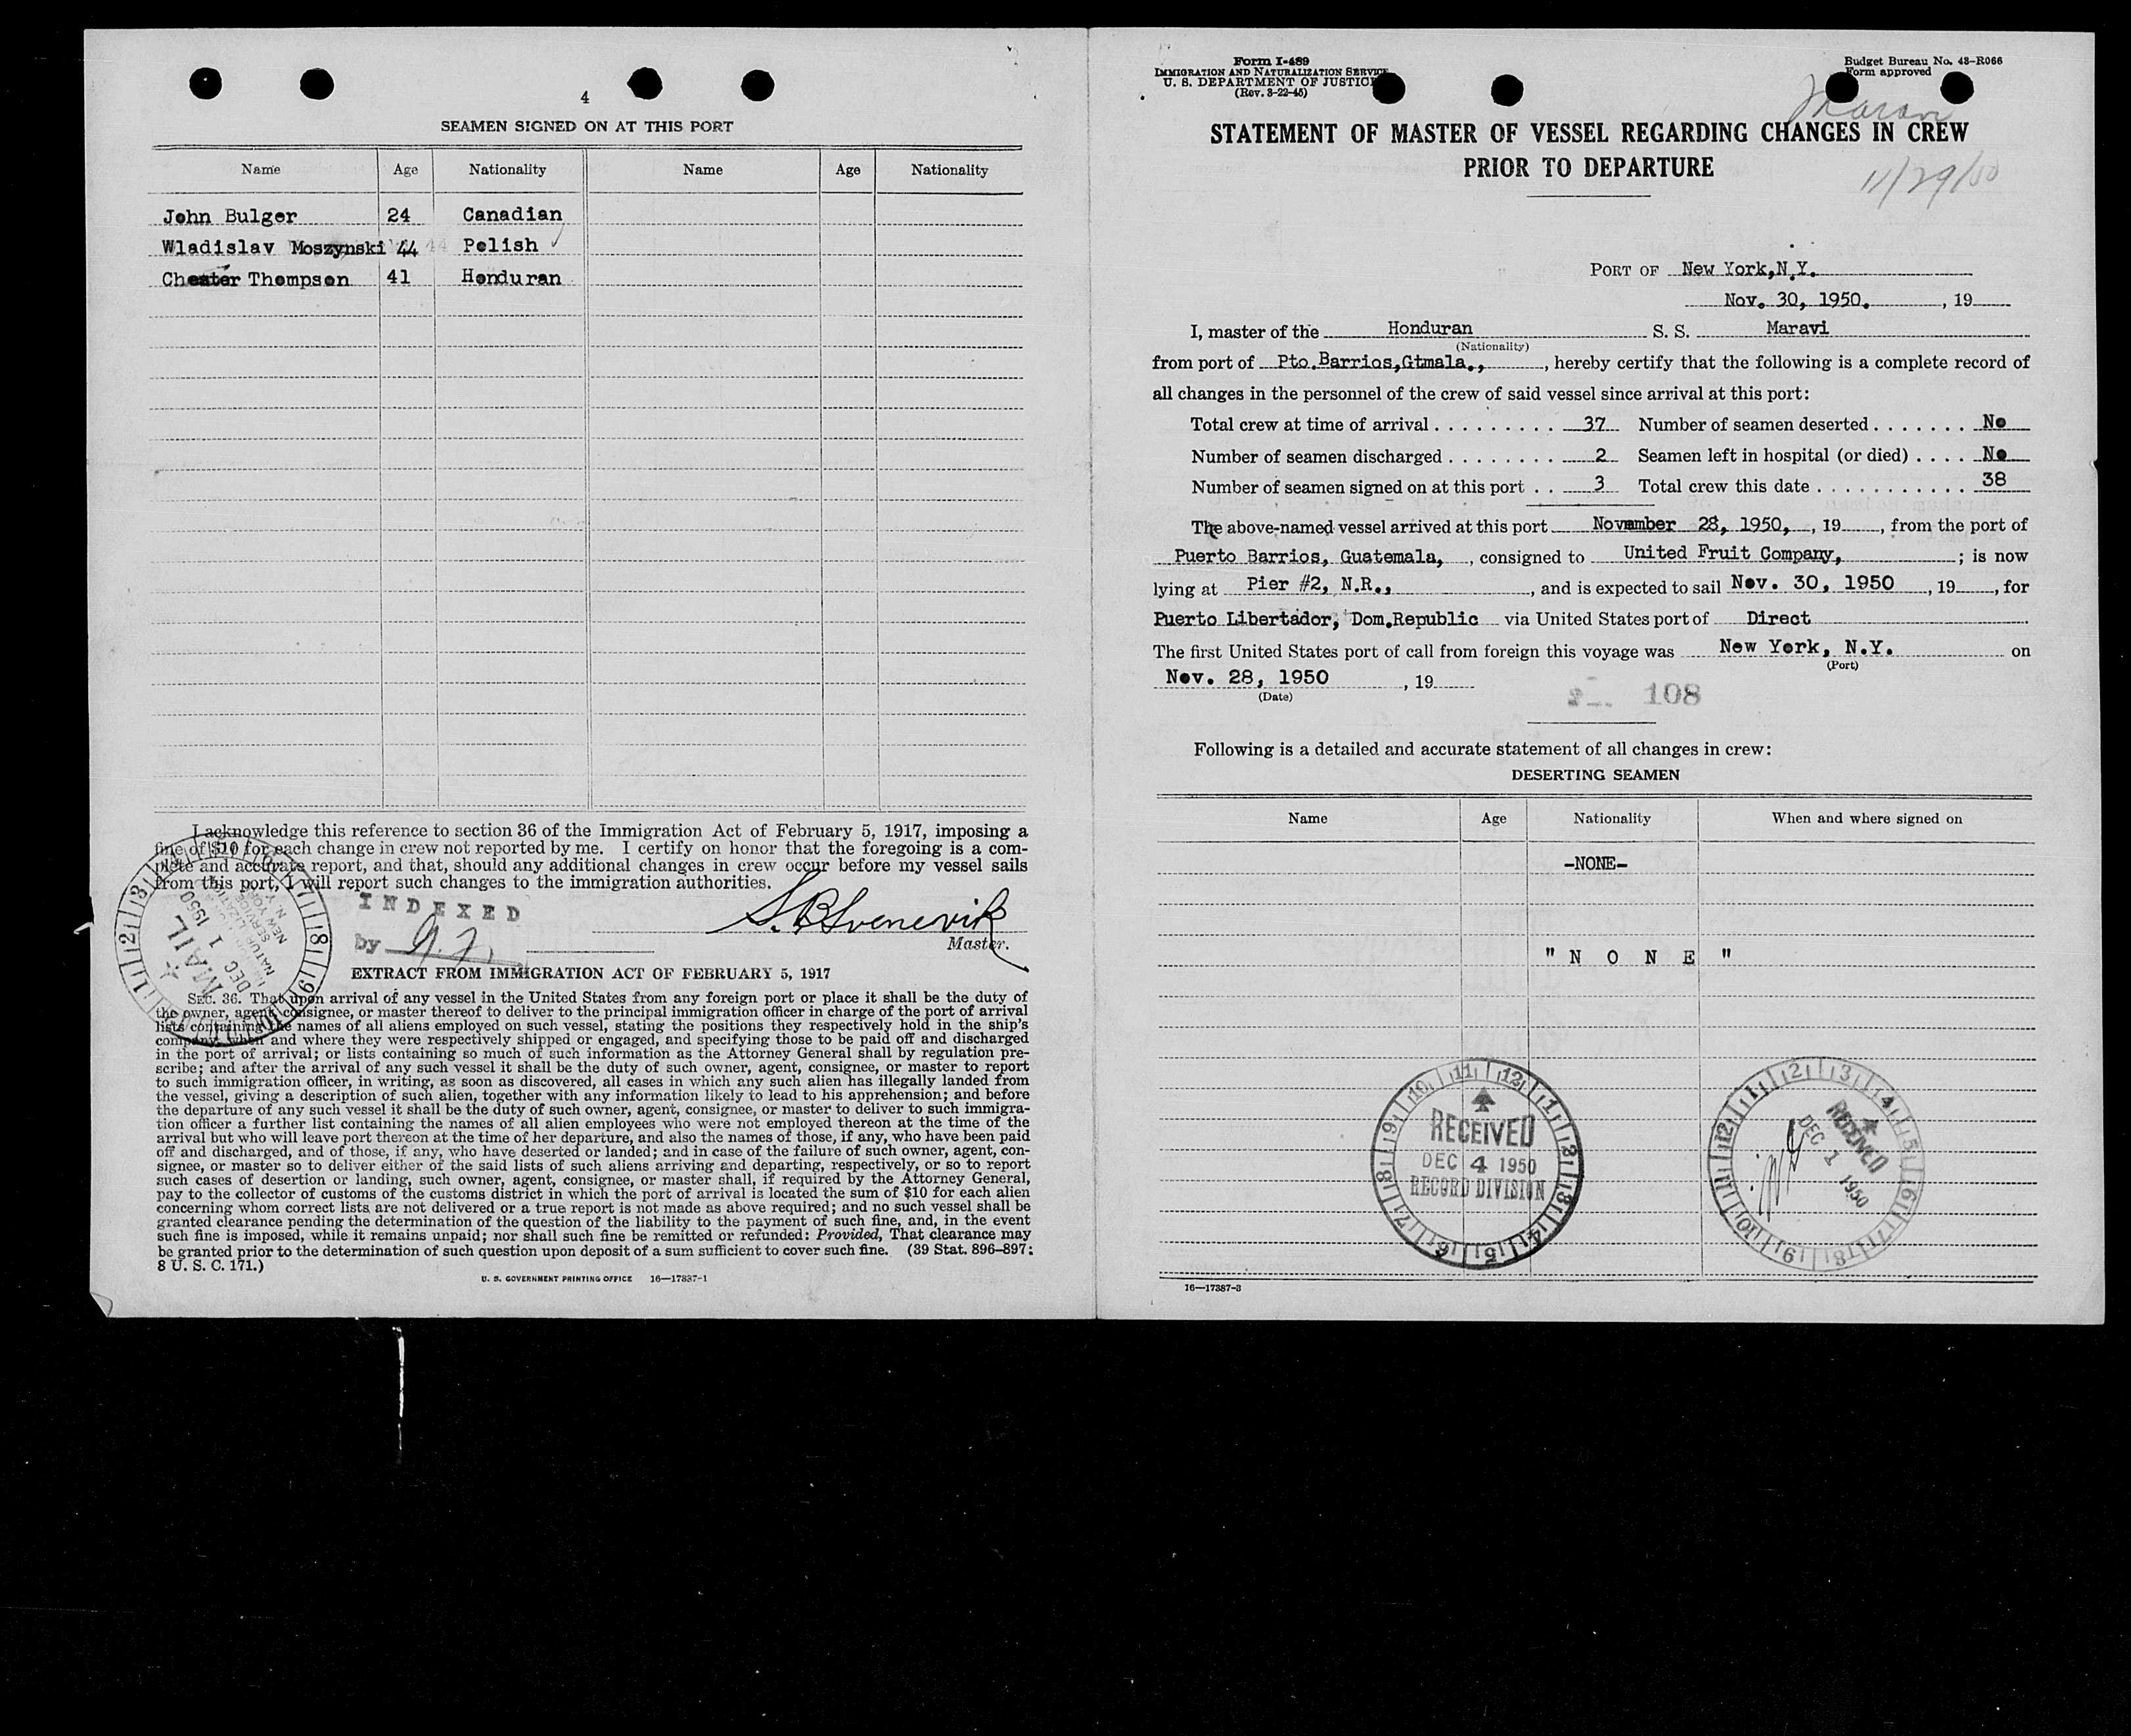 4
SEAMEN SIGNED ON AT THIS PORT
Name Age Nationality Name Age Nationality
John Bulger 24 Canadian
Wladislav Moszynski 44 44 Polish
Chester Thompson 41 Honduran
I acknowledge this reference to section 36 of the Immigration Act of February 5, 1917, imposing a
fine of $10 for each change in crew not reported by me. I certify on honor that the foregoing is a com-
plete and accurate report, and that, should any additional changes in crew occur before my vessel sails
from this port, I will report such changes to the immigration authorities.
INDEXED
by
Master.
MAIL
DEC 1 1950
EXTRACT FROM IMMIGRATION ACT OF FEBRUARY 5, 1917
SEC. 36. That upon arrival of any vessel in the United States from any foreign port or place it shall be the duty of
the owner, agent, consignee, or master thereof to deliver to the principal immigration officer in charge of the port of arrival
lists containing the names of all aliens employed on such vessel, stating the positions they respectively hold in the ship's
company, when and where they were respectively shipped or engaged, and specifying those to be paid off and discharged
in the port of arrival; or lists containing so much of such information as the Attorney General shall by regulation pre-
scribe; and after the arrival of any such vessel it shall be the duty of such owner, agent, consignee, or master to report
to such immigration officer, in writing, as soon as discovered, all cases in which any such alien has illegally landed from
the vessel, giving a description of such alien, together with any information likely to lead to his apprehension; and before
the departure of any such vessel it shall be the duty of such owner, agent, consignee, or master to deliver to such immigra-
tion officer a further list containing the names of all alien employees who were not employed thereon at the time of the
arrival but who will leave port thereon at the time of her departure, and also the names of those, if any, who have been paid
off and discharged, and of those, if any, who have deserted or landed; and in case of the failure of such owner, agent, con-
signee, or master so to deliver either of the said lists of such aliens arriving and departing, respectively, or so to report
such cases of desertion or landing, such owner, agent, consignee, or master shall, if required by the Attorney General,
pay to the collector of customs of the customs district in which the port of arrival is located the sum of $10 for each alien
concerning whom correct lists are not delivered or a true report is not made as above required; and no such vessel shall be
granted clearance pending the determination of the question of the liability to the payment of such fine, and, in the event
such fine is imposed, while it remains unpaid; nor shall such fine be remitted or refunded: Provided, That clearance may
be granted prior to the determination of such question upon deposit of a sum sufficient to cover such fine. (39 Stat. 896–897;
8 U. S. C. 171.)
U. S. GOVERNMENT PRINTING OFFICE 16—17387-1
Form I-489
IMMIGRATION AND NATURALIZATION SERVICE
U. S. DEPARTMENT OF JUSTICE
(Rev. 3-22-45)
Budget Bureau No. 43-R066
Form approved
Maravi
STATEMENT OF MASTER OF VESSEL REGARDING CHANGES IN CREW
PRIOR TO DEPARTURE
11/29/50
PORT OF New York,N.Y.
Nov. 30, 1950. , 19
I, master of the Honduran S. S. Maravi
(Nationality)
from port of Pto.Barrios,Gtmala., , hereby certify that the following is a complete record of
all changes in the personnel of the crew of said vessel since arrival at this port:
Total crew at time of arrival . . . . . . . . . 37 Number of seamen deserted . . . . . . . No
Number of seamen discharged . . . . . . . . 2 Seamen left in hospital (or died) . . . . No
Number of seamen signed on at this port . . 3 Total crew this date . . . . . . . . . . . 38
The above-named vessel arrived at this port November 28, 1950, , 19 , from the port of
Puerto Barrios, Guatemala, , consigned to United Fruit Company, ; is now
lying at Pier #2, N.R., , and is expected to sail Nov. 30, 1950 , 19 , for
Puerto Libertador, Dom.Republic via United States port of Direct
The first United States port of call from foreign this voyage was New York, N.Y. on
(Port)
Nov. 28, 1950 , 19
(Date)
108
Following is a detailed and accurate statement of all changes in crew:
DESERTING SEAMEN
Name Age Nationality When and where signed on
-NONE-
" N O N E "
RECEIVED
DEC 4 1950
RECORD DIVISION
RECEIVED
DEC 1 1950
16—17387-3